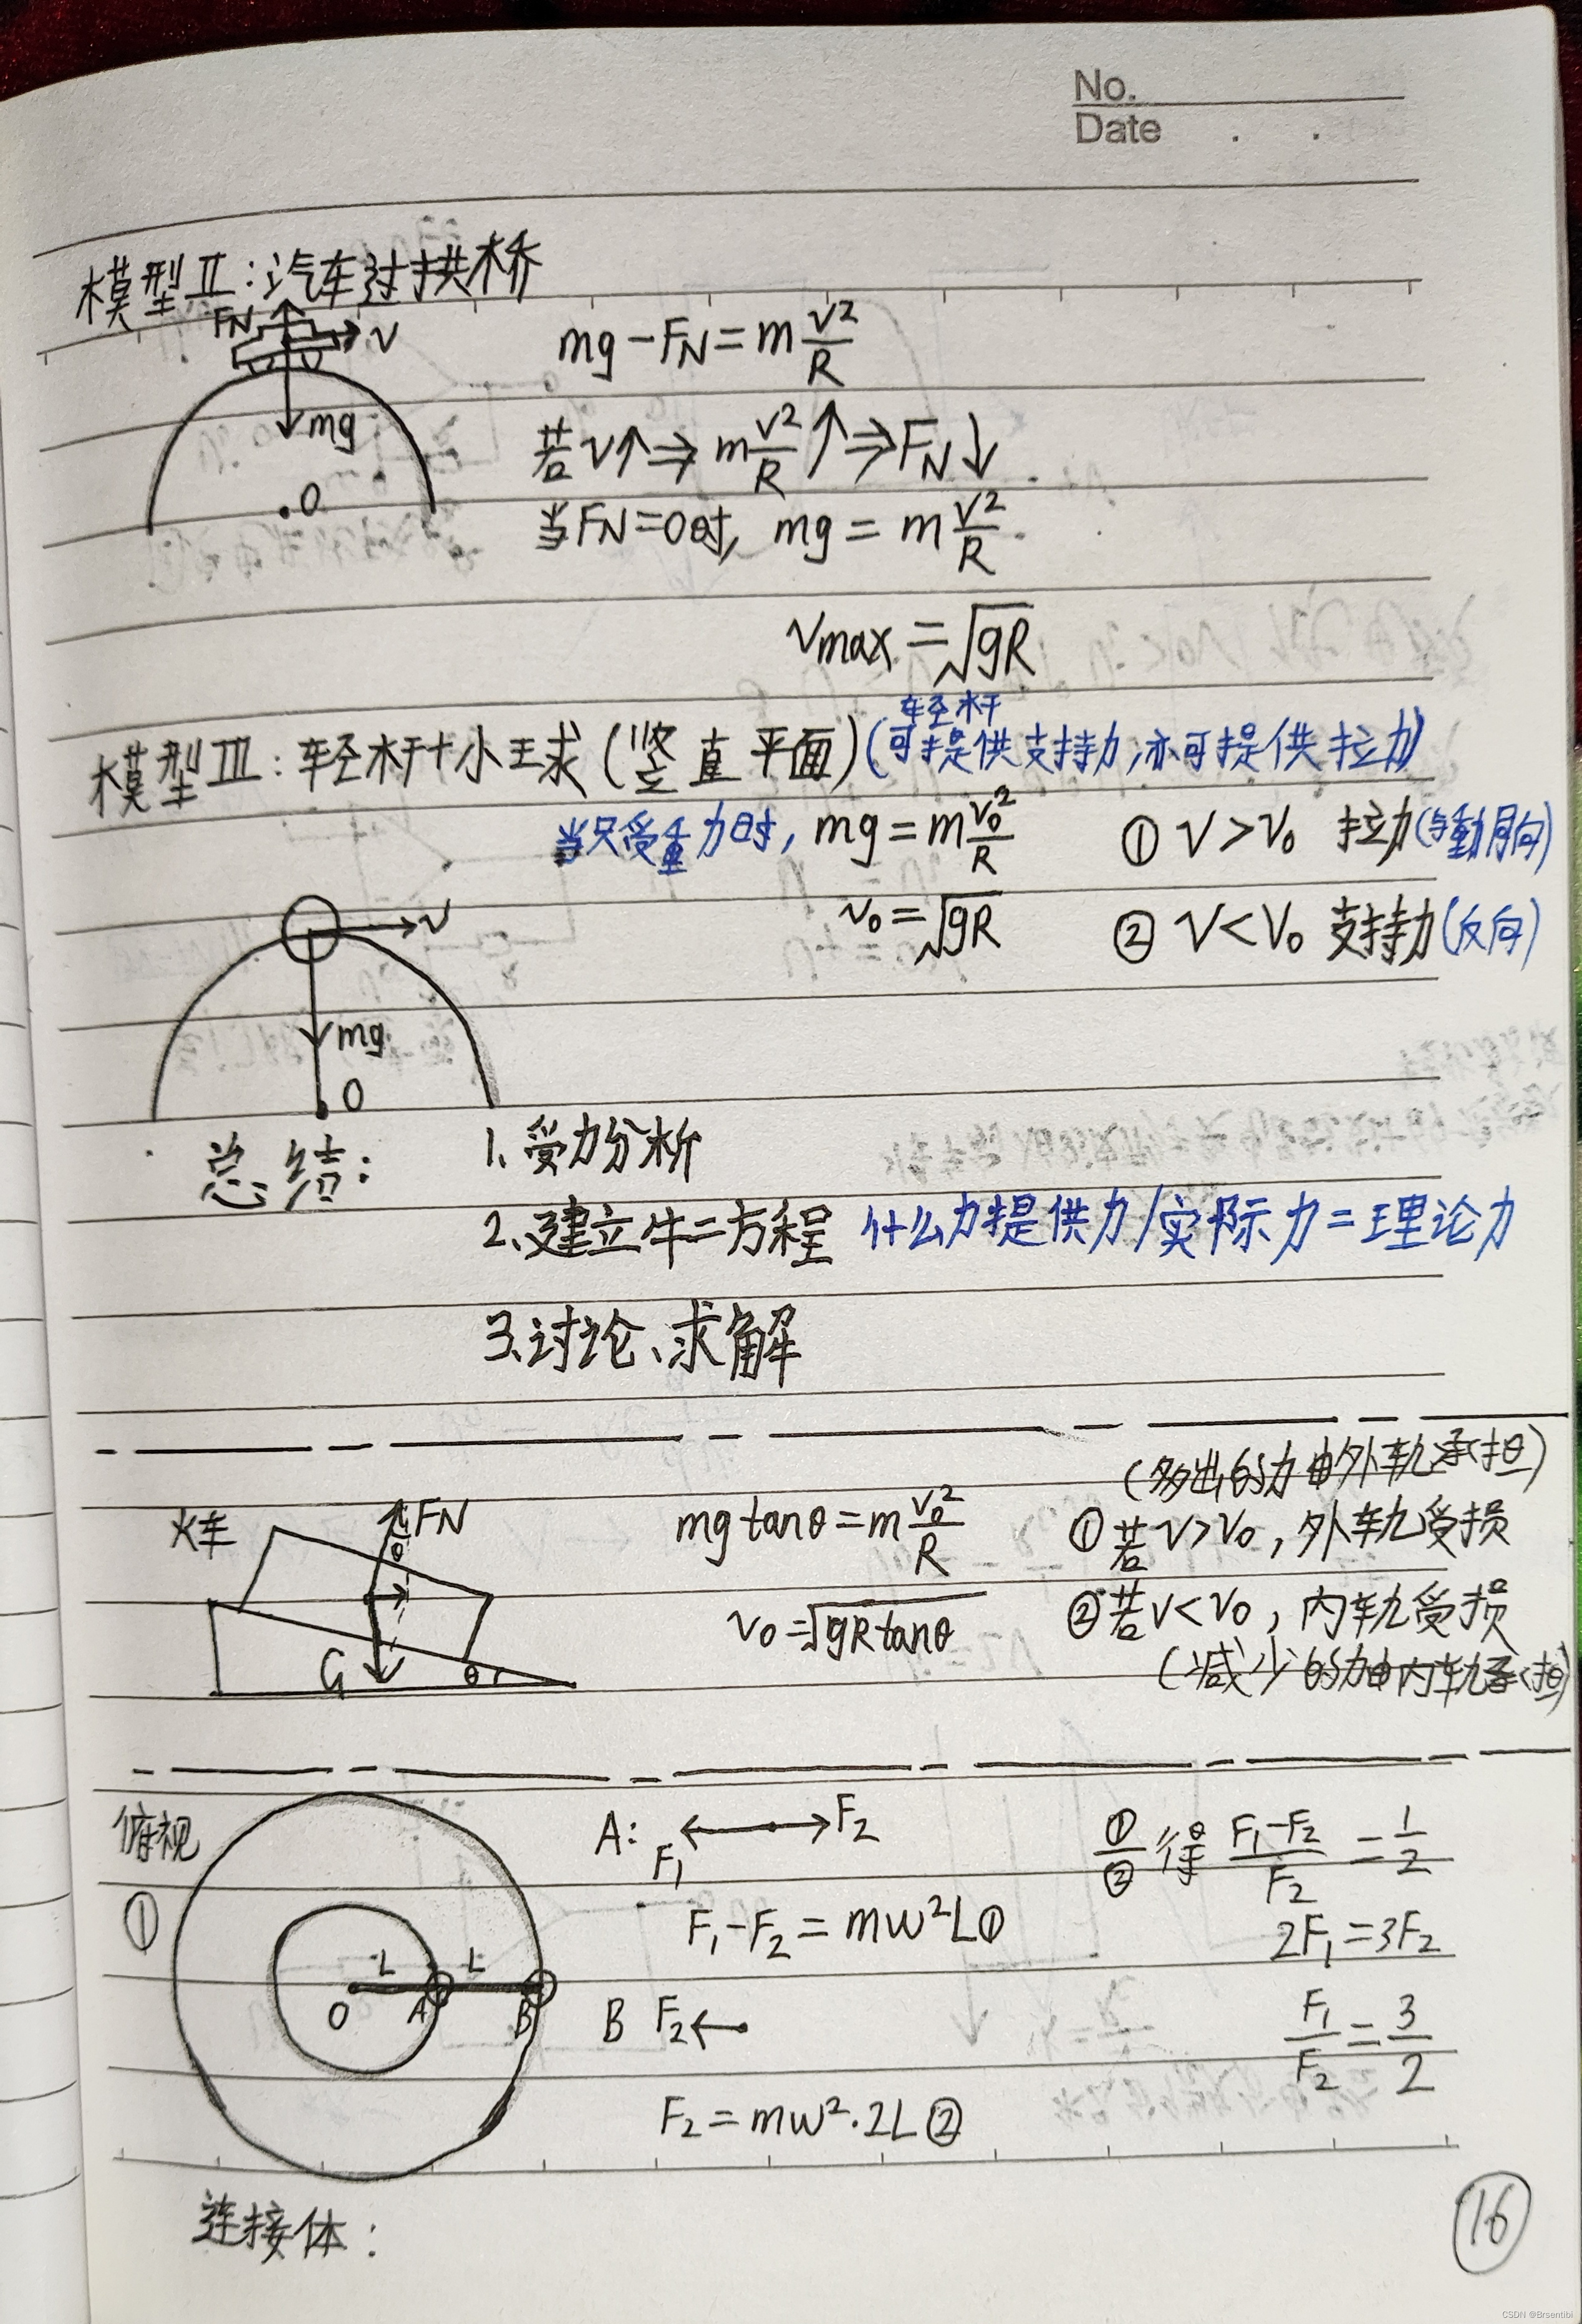 No.
Date . .
模型Ⅱ:汽车过拱桥
FN v
mg
O
mg-FN=m v²/R
若v↑⇒m v²/R↑⇒FN↓
当FN=0时, mg=m v²/R
vmax=√gR
模型Ⅲ:轻杆+小球(竖直平面)(可提供支持力,亦可提供拉力)
轻杆
当只受重力时, mg=m v₀²/R ① v>v₀ 拉力(与重力同向)
v₀=√gR ② v<v₀ 支持力(反向)
v
mg
O
总结: 1.受力分析
2.建立牛二方程 什么力提供力/实际力=理论力
3.讨论、求解
(多出的力由外轨承担)
火车 FN θ G θ
mgtanθ=m v₀²/R ①若v>v₀,外轨受损
v₀=√gRtanθ ②若v<v₀,内轨受损
(减少的力由内轨承担)
俯视
①
L L
O A B
A: F₁ F₂
F₁-F₂=mw²L①
B F₂
F₂=mw²·2L②
①/② 得 (F₁-F₂)/F₂=1/2
2F₁=3F₂
F₁/F₂=3/2
连接体:
16
CSDN @Brsentibi